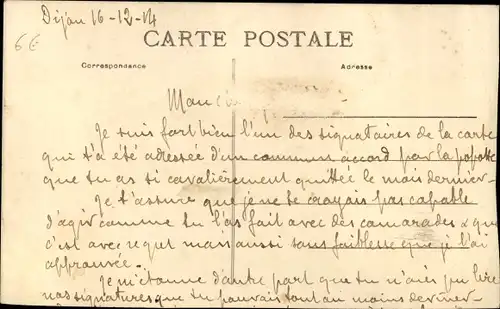 Dijon 16-12-14
6€
CARTE POSTALE
Correspondance
Adresse
Je suis fort bien l'un des signataires de la carte
qui t'a été adressée d'un commun accord par la popotte
que tu as si cavalièrement quittée le mois dernier -
Je t'assure que je ne te croyais pas capable
d'agir comme tu l'as fait avec des camarades & que
c'est avec regret mais aussi sans faiblesse que je l'ai
approuvée.
Je m'étonne d'autre part que tu n'aies pu lire
nos signatures que tu pouvais tout au moins deviner -